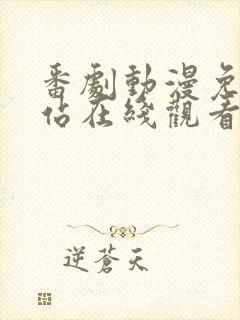 番劇動漫免
佔在綫觀看
逆蒼天